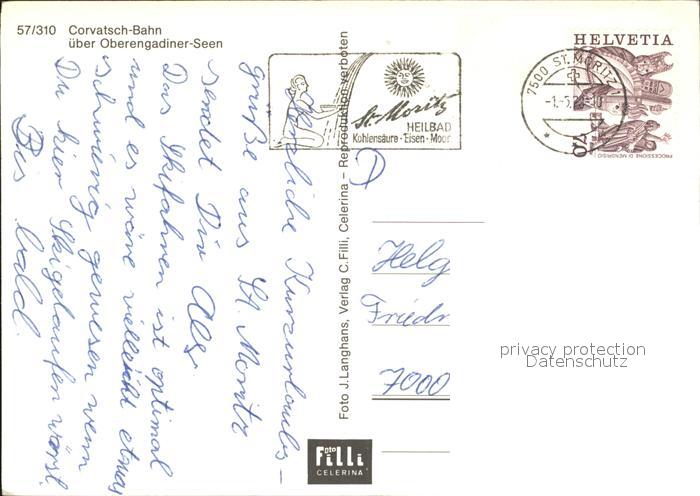 57/310 Corvatsch-Bahn
über Oberengadiner-Seen
Herzliche Kurzurlaubs-
grüße aus St. Moritz
sendet Dir Alex
Das Skifahren ist optimal
und es wäre vielleicht etwas
schwierig gewesen wenn
Du hier Skigelaufen wärst.
Bis bald
Foto J. Langhans, Verlag C. Filli, Celerina – Reproduktion verboten
St. Moritz
HEILBAD
Kohlensäure · Eisen · Moor
7500 ST. MORITZ
HELVETIA
PROCESSIONE DI MENDRISIO
Helg
Friedr
7000
Foto
Filli
CELERINA
privacy protection
Datenschutz